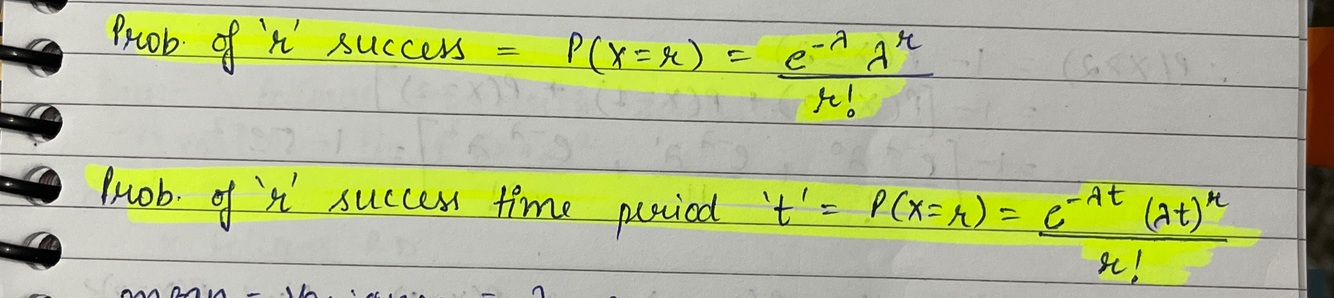 Prob. of 'r' success = P(X=r) = e^-λ λ^r / r!
Prob. of 'r' success time period 't' = P(X=r) = e^-λt (λt)^r / r!
mean = = λ